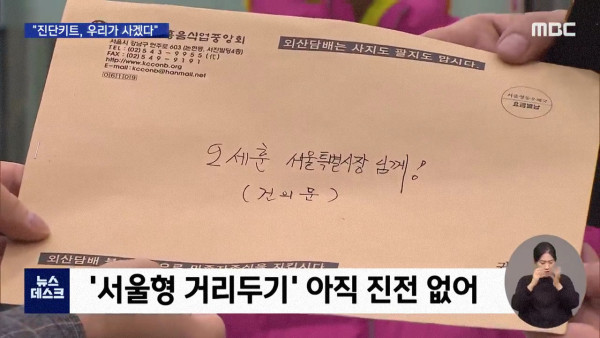 "진단키트, 우리가 사겠다"
MBC
음식업중앙회
TEL : (02) 543-9955 (代)
FAX : (02) 549-9191
http://www.kcconb.com
E-mail : kcconb@hanmail.net
외산담배는 사지도 팔지도 맙시다.
요금별납
오세훈 서울특별시장 님께!
(건의문)
외산담배
뉴스
데스크
'서울형 거리두기' 아직 진전 없어